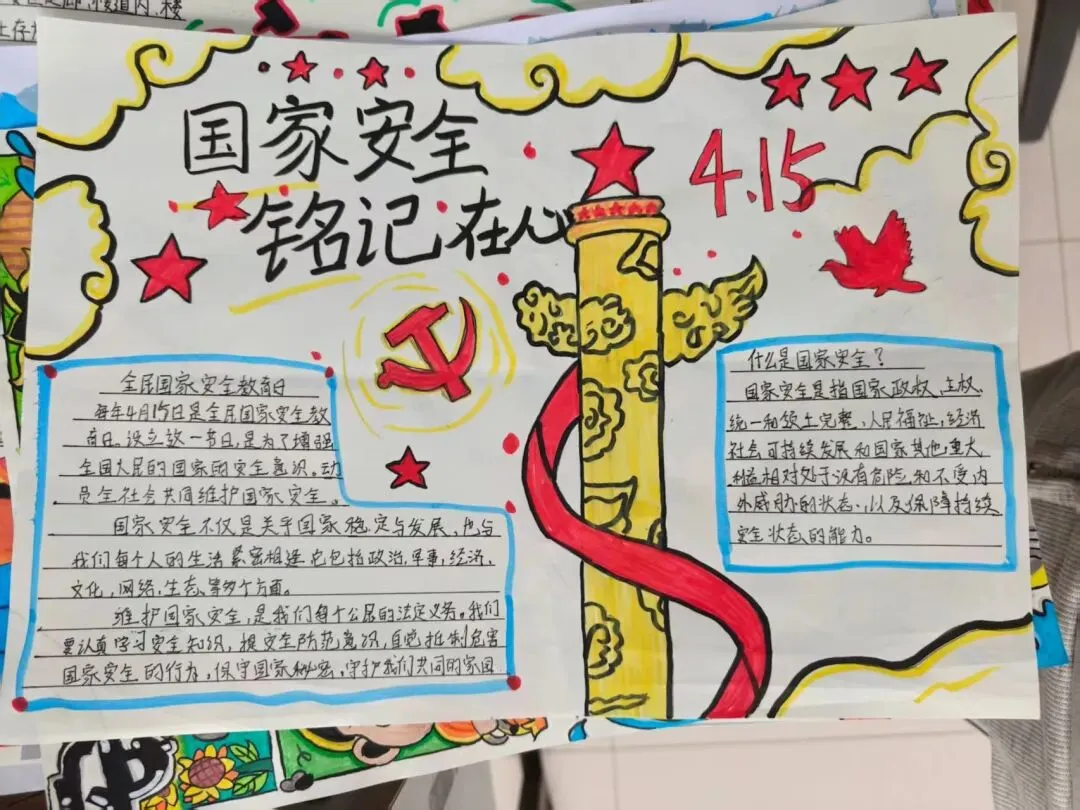 楼道内、楼
国家安全
铭记在心
4.15
全民国家安全教育日
每年4月15日是全民国家安全教
育日。设立这一节日是为了增强
全国人民的国家的安全意识,动
员全社会共同维护国家安全。
国家安全不仅是关乎国家稳定与发展,也与
我们每个人的生活紧密相连它包括政治,军事,经济,
文化,网络,生态、等多个方面。
维护国家安全,是我们每个公民的法定义务。我们
要认真学习安全知识,提安全防范意识,自觉抵制危害
国家安全的行为,保守国家秘密,守护我们共同的家园
什么是国家安全?
国家安全是指国家政权、主权、
统一和领土完整、人民福祉,经济
社会可持续发展和国家其他重大
利益相对处于没有危险和不受内
外威胁的状态、以及保障持续
安全状态的能力。